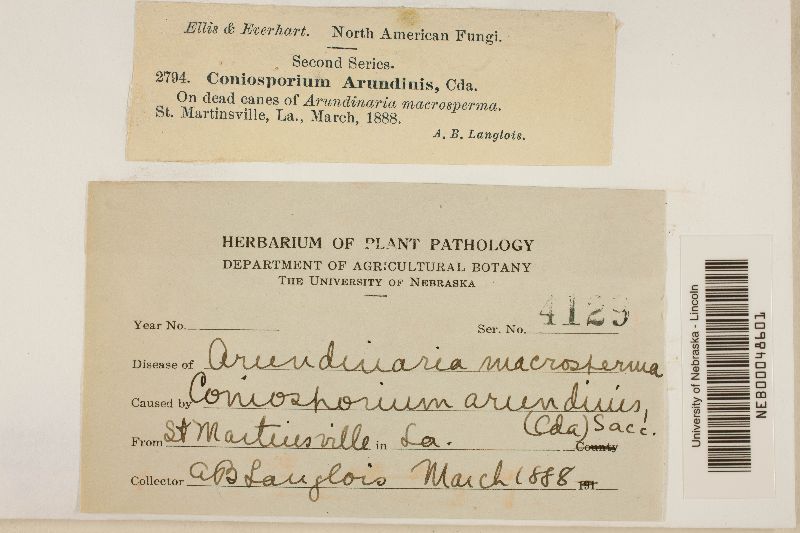 Ellis & Everhart. North American Fungi.
Second Series.
2794. Coniosporium Arundinis, Cda.
On dead canes of Arundinaria macrosperma.
St. Martinsville, La., March, 1888.
A. B. Langlois.
HERBARIUM OF PLANT PATHOLOGY
DEPARTMENT OF AGRICULTURAL BOTANY
THE UNIVERSITY OF NEBRASKA
Year No.
Ser. No. 4129
Disease of Arundinaria macrosperma
Caused by Coniosporium arundinis,
(Cda) Sacc.
From St Martinsville in La. County
Collector A B Langlois March 1888 191
University of Nebraska - Lincoln
NEB00048601